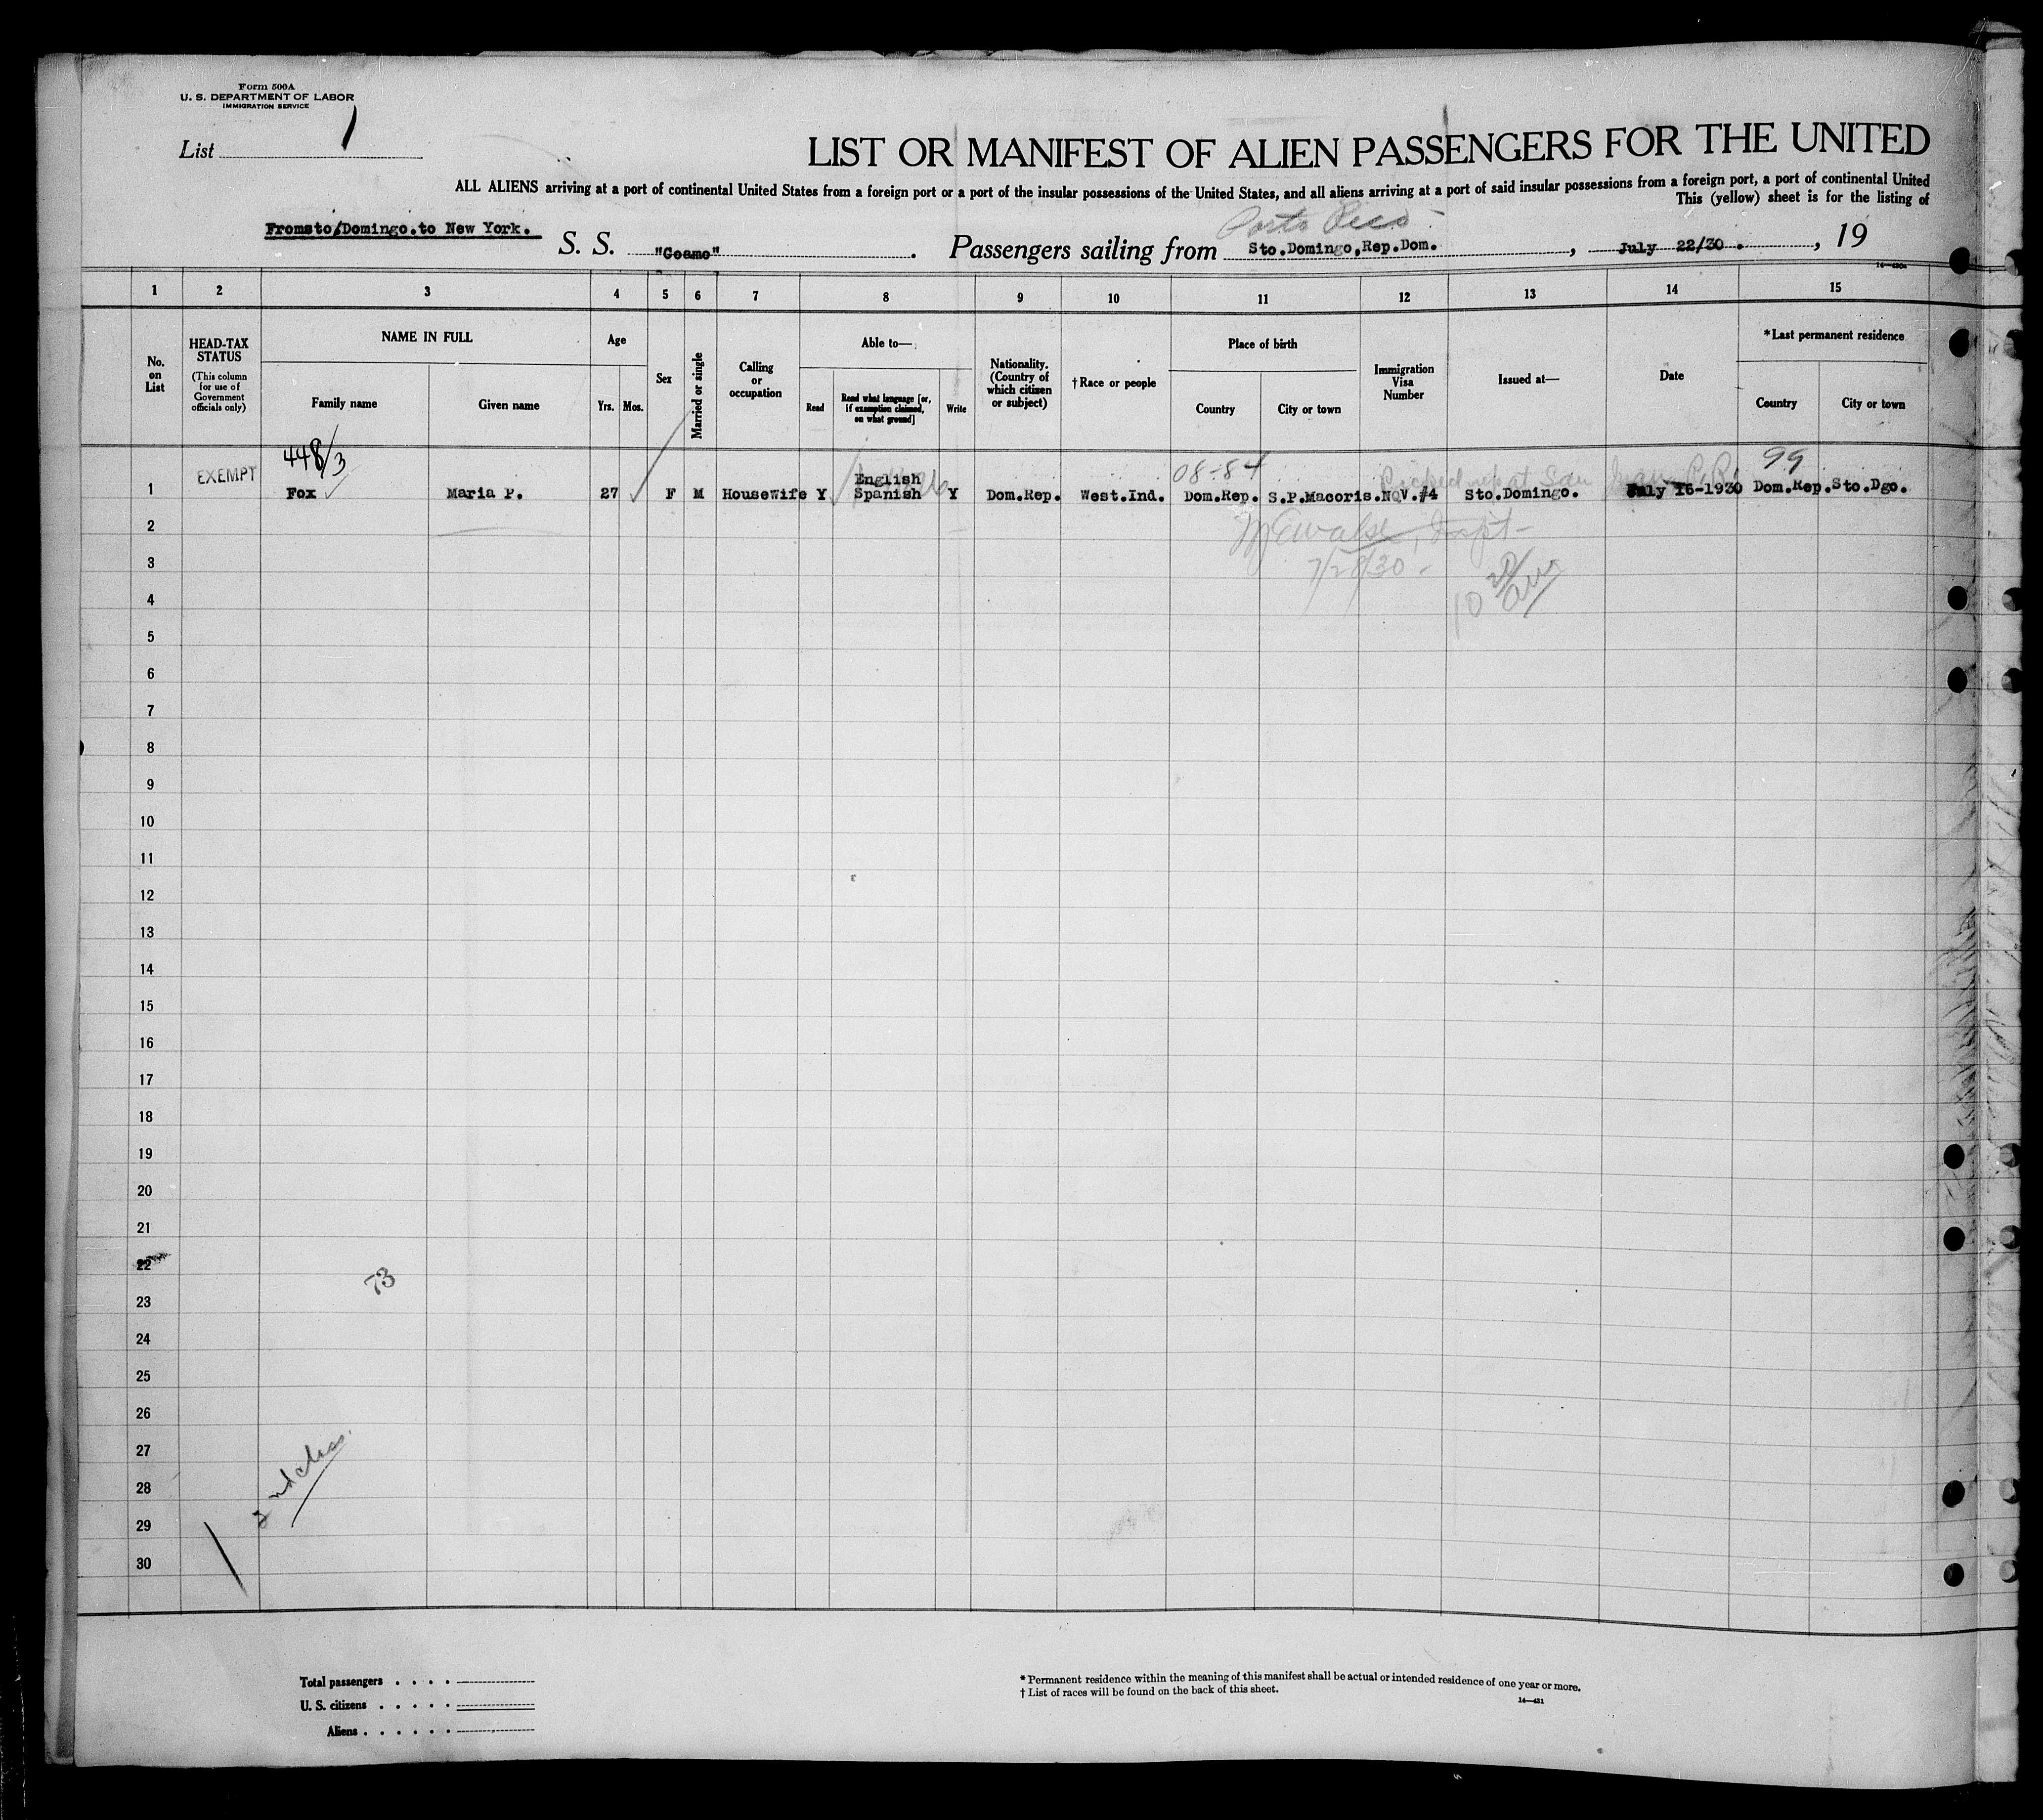 Form 500A
U. S. DEPARTMENT OF LABOR
IMMIGRATION SERVICE
List 1
LIST OR MANIFEST OF ALIEN PASSENGERS FOR THE UNITED
ALL ALIENS arriving at a port of continental United States from a foreign port or a port of the insular possessions of the United States, and all aliens arriving at a port of said insular possessions from a foreign port, a port of continental United
This (yellow) sheet is for the listing of
Porto Rico
Fromsto/Domingo.to New York. S. S. "Coamo". Passengers sailing from Sto.Domingo,Rep.Dom., July 22/30., 19
14—430a
1 2 3 4 5 6 7 8 9 10 11 12 13 14 15
No. on List
HEAD-TAX STATUS
(This column for use of Government officials only)
NAME IN FULL
Family name
Given name
Age
Yrs. Mos.
Sex
Married or single
Calling or occupation
Able to—
Read
Read what language [or, if exemption claimed, on what ground]
Write
Nationality. (Country of which citizen or subject)
† Race or people
Place of birth
Country
City or town
Immigration Visa Number
Issued at—
Date
*Last permanent residence
Country
City or town
448/3
08-84
99
EXEMPT
Picked up at San Juan P.R.
English
1 Fox Maria P. 27 F M Housewife Y Spanish Y Dom.Rep. West.Ind. Dom.Rep. S.P.Macoris. NQV.#4 Sto.Domingo. July 16-1930 Dom.Rep. Sto.Dgo.
2
3
4
5
6
7
8
9
10
11
12
13
14
15
16
17
18
19
20
21
22
73
23
24
25
26
27
28
2nd class.
29
30
Total passengers
U. S. citizens
Aliens
* Permanent residence within the meaning of this manifest shall be actual or intended residence of one year or more.
† List of races will be found on the back of this sheet.
14—431